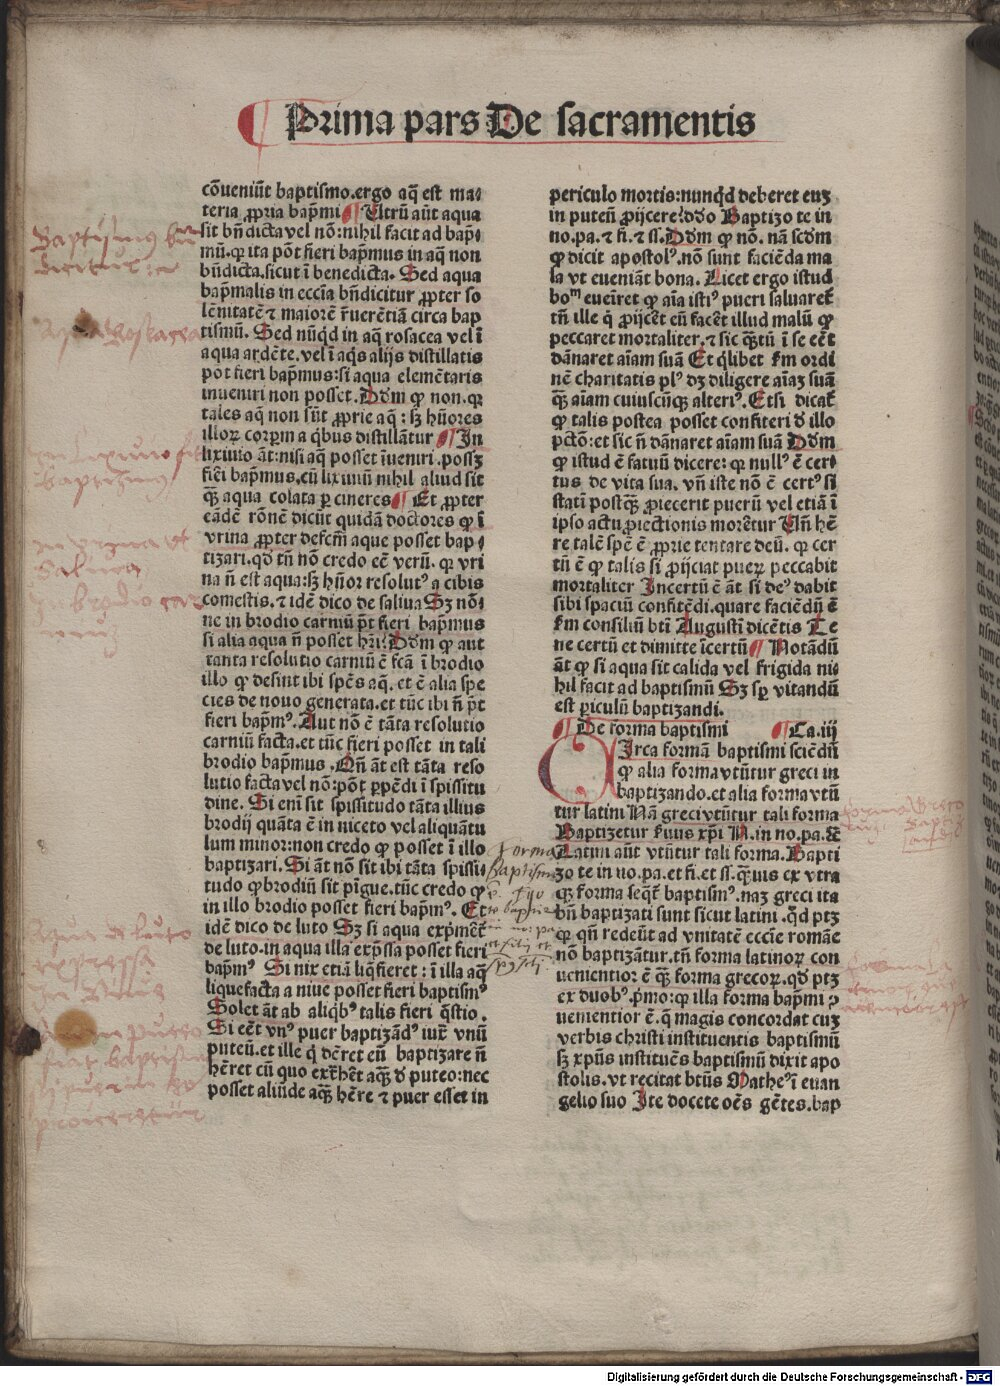 Prima pars De sacramentis
cōueniūt baptismo.ergo aq̄ est ma⸗
teria ꝓpria bap̄mi ¶ Utrū aūt aqua
sit bn̄dicta vel nō:nihil facit ad bap̄⸗
mū.qꝫ ita pōt fieri bap̄mus in aq̄ non
bn̄dicta.sicut ī benedicta. Sed aqua
bap̄malis in eccīa bn̄dicitur ꝓpter so
lēnitatē ⁊ maiorē r̄uerētiā circa bap
tismū. Sed nūqd in aq̄ rosacea vel ī
aqua ardēte.vel ī aq̄s alijs distillatis
pōt fieri bap̄mus:si aqua elemētaris
inueniri non posset. Dd̄m ꝙ non.qꝛ
tales aq̄ non sūt ꝓprie aq̄ : sꝫ hūores
illoꝝ corꝑm a q̄bus distillātur ¶ In
lixiuio āt:nisi aq̄ posset īueniri.possꝫ
fiēi bap̄mus.cū lixiuiū nihil aliud sit
q̄ꝫ aqua colata ꝑ cineres ¶ Et ꝓpter
eādē rōnē dicūt quidā doctores ꝙ ī
vrina ꝓpter defectū aque posset bap⸗
tizari.qd tn̄ nō credo eē verū. qꝛ vri
na n̄ est aqua:sꝫ hūor resolutꝰ a cibis
comestis.⁊ idē dico de saliua Sꝫ nō⸗
ne in brodio carniū p̄t fieri bap̄mus
si alia aqua n̄ posset hr̄i? Dd̄m ꝙ aut
tanta resolutio carniū ē fcā ī brodio
illo ꝙ desint ibi spēs aq̄. et ē alia spe
cies de nouo generata.et tūc ibi n̄ p̄t
fieri bap̄mꝰ. Aut nō ē tāta resolutio
carniū facta.et tūc fieri posset in tali
brodio bap̄mus . Qn̄ āt est tāta reso
lutio facta vel nō:pōt ꝑpēdi ī spissitu
dine. Si eni sit spissitudo tāta illius
brodij quāta ē in niceto vel aliquātu
lum minor:non credo ꝙ posset ī illo
baptizari. Si āt nō sit ibi tāta spissi
tudo ꝙ brodiū sit pīgue.tūc credo ꝙ
in illo brodio posset fieri bap̄mꝰ. Et
idē dico de luto Sꝫ si aqua exp̄met̄
de luto.in aqua illa exp̄ssa posset fieri
bap̄mꝰ Si nix etiā liq̄fieret : ī illa aq̄
liquefacta a niue posset fieri baptismꝰ
Solet āt ab aliq̄bꝰ talis fieri q̄stio .
Si eēt vnꝰ puer baptizādꝰ iuxͣ vnū
puteū.et ille q̄ dēret eū baptizare n̄
hēret cū quo extͣhēt aq̄ꝫ d̄ puteo:nec
posset aliūde aq̄ꝫ hēre ⁊ puer esset in
periculo mortis:nunqͥd deberet euꝫ
in puteū ꝓijcere?dd̄o Baptizo te in
no.pa.⁊ fi.⁊ ss̄. Dd̄m ꝙ nō. nā scd̄m
ꝙ dicit apostolꝰ.nō sunt faciēda ma
la vt eueniāt bona. Licet ergo istud
boᵐ eueīret ꝙ aīa istiꝰ pueri saluaret̄
tn̄ ille q̄ ꝓijcēt eū facēt illud malū ꝙ
peccaret mortaliter.⁊ sic q̄ꝫtū ī se eēt
dānaret aīam suā Et q̄libet scd̄m ordi
nē charitatis plꝰ dꝫ diligere aīaꝫ suā
q̄ꝫ aīam cuiuscūqꝫ alteriꝰ. Etsi dicat̄
ꝙ talis postea posset confiteri d̄ illo
pctō:et sic n̄ dānaret aīam suā Dd̄m
ꝙ istud ē fatuū dicere: qꝛ nullꝰ ē cer⸗
tus de vita sua. vn̄ iste nō ē certꝰ si
statī postq̄ꝫ ꝓiecerit puerū vel etiā ī
ipso actu ꝓiectionis morētur Un̄ hē⸗
re talē spē ē ꝓprie tentare deū. qꝛ cer
tū ē ꝙ talis si ꝓijciat pueꝝ peccabit
mortaliter Incertū ē āt si deꝰ dabit
sibi spaciū confitēdi.quare faciēdū ē
scd̄m consiliū bt̄i Augustī dicētis Te
ne certū et dimitte īcertū ¶ Notādū
āt ꝙ si aqua sit calida vel frigida ni⸗
hil facit ad baptismū Sꝫ sꝑ vitandū
est ꝑiculū baptizandi.
¶ De forma baptismi ¶ Ca.iij
CIrca formā baptismi sciēdū
ꝙ alia forma vtūtur greci in
baptizando.et alia forma vtū
tur latini Nā greci vtūtur tali forma
Baptizetur seruus xp̄i N.in no.pa.⁊c
Latini aūt vtūtur tali forma. Bapti
zo te in no.pa.et fi.et ss̄.q̄ꝫuis ex vtra
qꝫ forma seqͣt̄ baptismꝰ.naꝫ greci ita
bn̄ baptizati sunt sicut latini .qͥd ptꝫ
qꝛ qn̄ redeūt ad vnitatē eccīe romāe
nō baptizātur.tn̄ forma latinoꝝ con
uenientior ē q̄ꝫ forma grecoꝝ.qd ptꝫ
ex duobꝰ.p̄mo:qꝛ illa forma bap̄mi ꝯ
uenientior ē.q̄ magis concordat cuꝫ
verbis christi instituentis baptismū
sꝫ xp̄us instituēs baptismū dixit apo
stolis.vt recitat bt̄us Matheꝰ ī euan
gelio suo Ite docete oēs gētes.bap
Forma
Baptismi
Aqua Rosacea
Digitalisierung gefördert durch die Deutsche Forschungsgemeinschaft - DFG